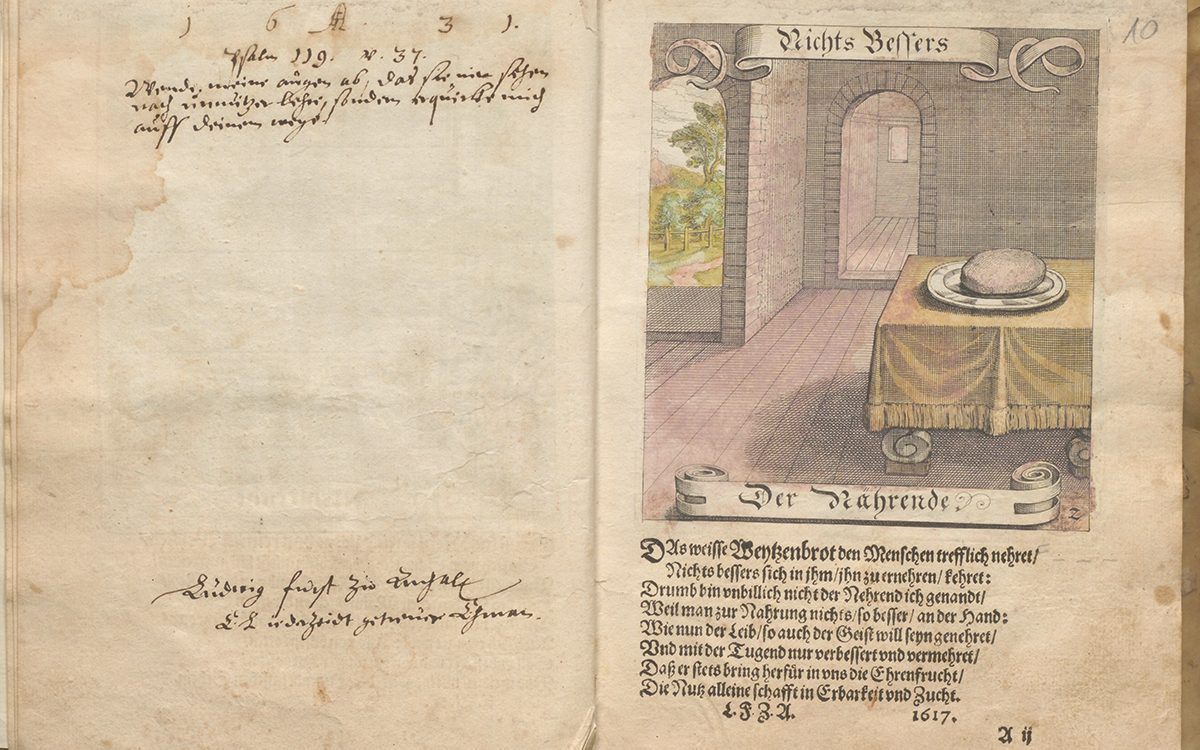 1 6 3 1.
Psalm 119. v. 37.
Wende meine augen ab, das sie nir sehen
nach unnützer lehre, sondern erquicke mich
auff deinem wege.
Ludwig fürst zu Anhalt
E L iederzeidt getreuer Ehman.
10
Nichts Bessers
Der Nährende
2
DAs weisse Weytzenbrot den Menschen trefflich nehret/
Nichts bessers sich in jhm/jhn zu ernehren/kehret:
Drumb bin vnbillich nicht der Nehrend ich genandt/
Weil man zur Nahrung nichts/so besser/an der Hand:
Wie nun der Leib/so auch der Geist will seyn genehret/
Vnd mit der Tugend nur verbessert vnd vermehret/
Daß er stets bring herfür in vns die Ehrenfrucht/
Die Nutz alleine schafft in Erbarkeit vnd Zucht.
L. F. Z. A. 1617.
A ij